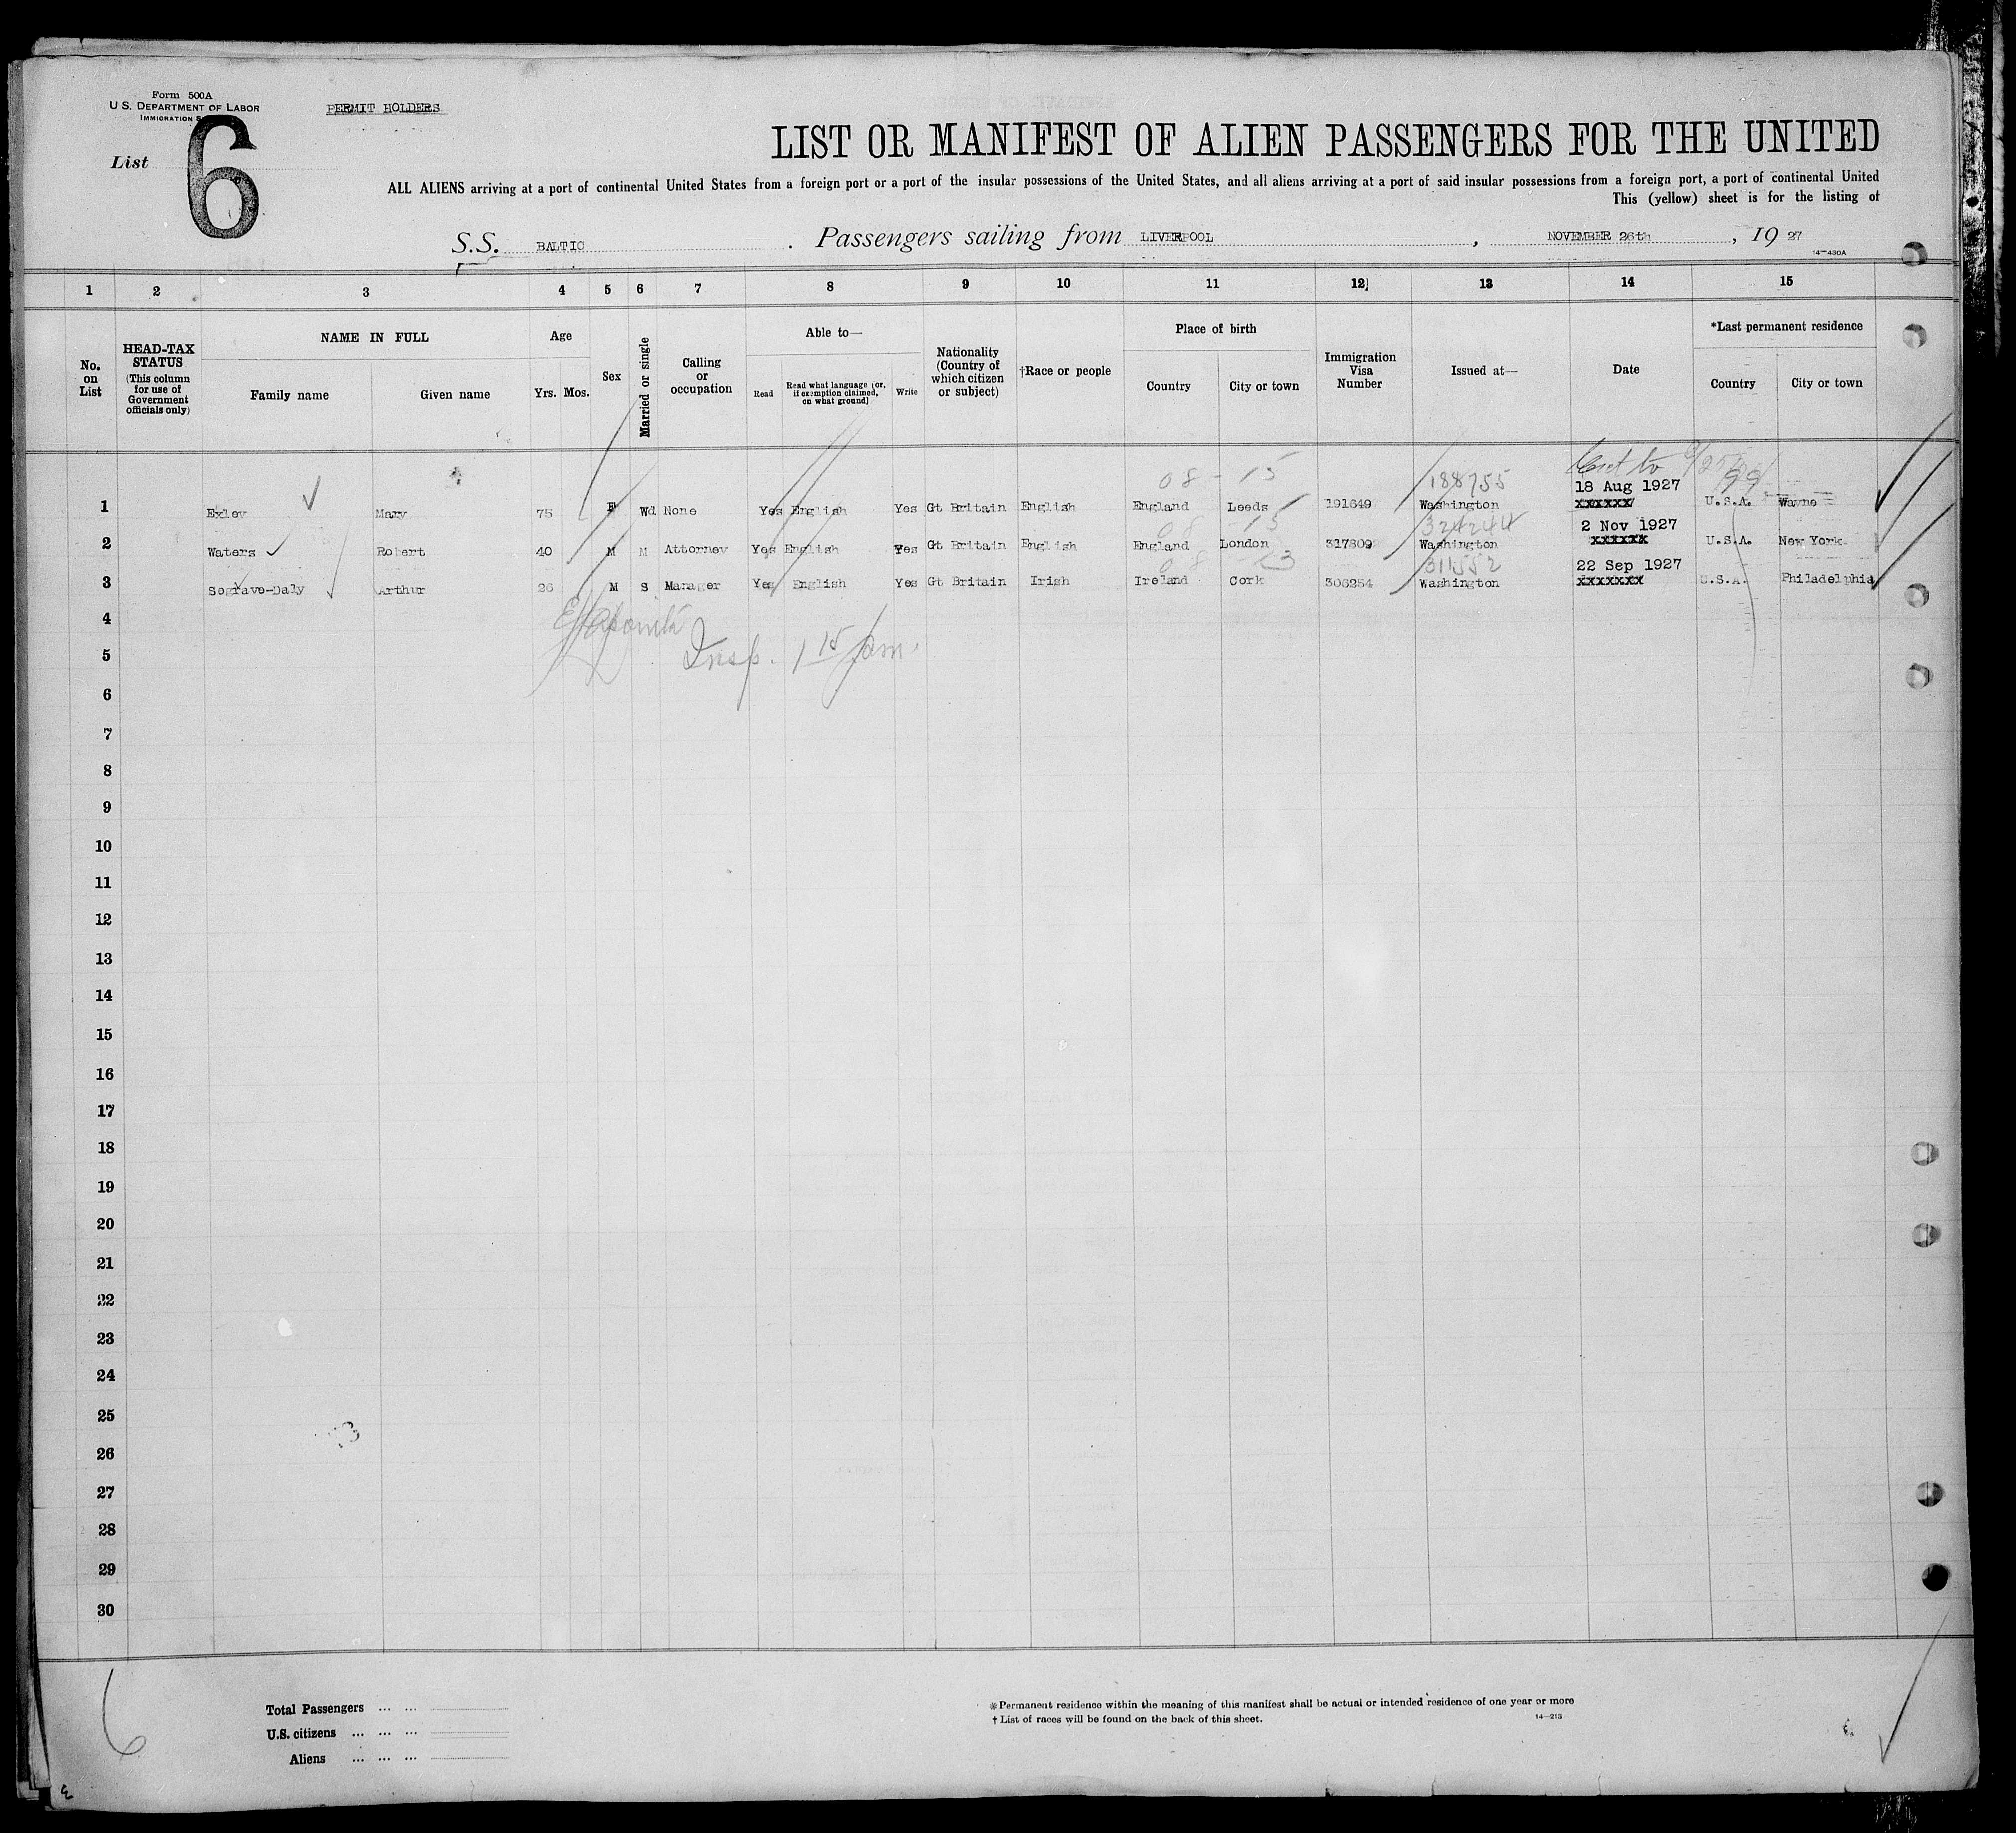 Form 500A
U.S. DEPARTMENT OF LABOR
IMMIGRATION
PERMIT HOLDERS
List 6
LIST OR MANIFEST OF ALIEN PASSENGERS FOR THE UNITED
ALL ALIENS arriving at a port of continental United States from a foreign port or a port of the insular possessions of the United States, and all aliens arriving at a port of said insular possessions from a foreign port, a port of continental United
This (yellow) sheet is for the listing of
S.S. BALTIC . Passengers sailing from LIVERPOOL , NOVEMBER 26th , 19 27
14-430A
1 2 3 4 5 6 7 8 9 10 11 12 13 14 15
No. on List
HEAD-TAX STATUS (This column for use of Government officials only)
NAME IN FULL
Family name Given name
Age
Yrs. Mos.
Sex
Married or single
Calling or occupation
Able to—
Read Read what language (or, if exemption claimed, on what ground) Write
Nationality (Country of which citizen or subject)
†Race or people
Place of birth
Country City or town
Immigration Visa Number
Issued at—
Date
*Last permanent residence
Country City or town
08 - 15 188755
18 Aug 1927
1 Exley Mary 75 F Wd None Yes English Yes Gt Britain English England Leeds 191649 Washington xxxxxx U.S.A. Wayne
08 15 324244 2 Nov 1927
2 Waters Robert 40 M M Attorney Yes English Yes Gt Britain English England London 317809 Washington xxxxxx U.S.A. New York
08 311552 22 Sep 1927
3 Segrave-Daly Arthur 26 M S Manager Yes English Yes Gt Britain Irish Ireland Cork 306254 Washington xxxxxxx U.S.A. Philadelphia
4
5 Insp. 1 15 pm.
6
7
8
9
10
11
12
13
14
15
16
17
18
19
20
21
22
23
24
25
26
27
28
29
30
6
Total Passengers ... ...
U.S. citizens ... ... ...
Aliens ... ... ...
*Permanent residence within the meaning of this manifest shall be actual or intended residence of one year or more
† List of races will be found on the back of this sheet.
14-213